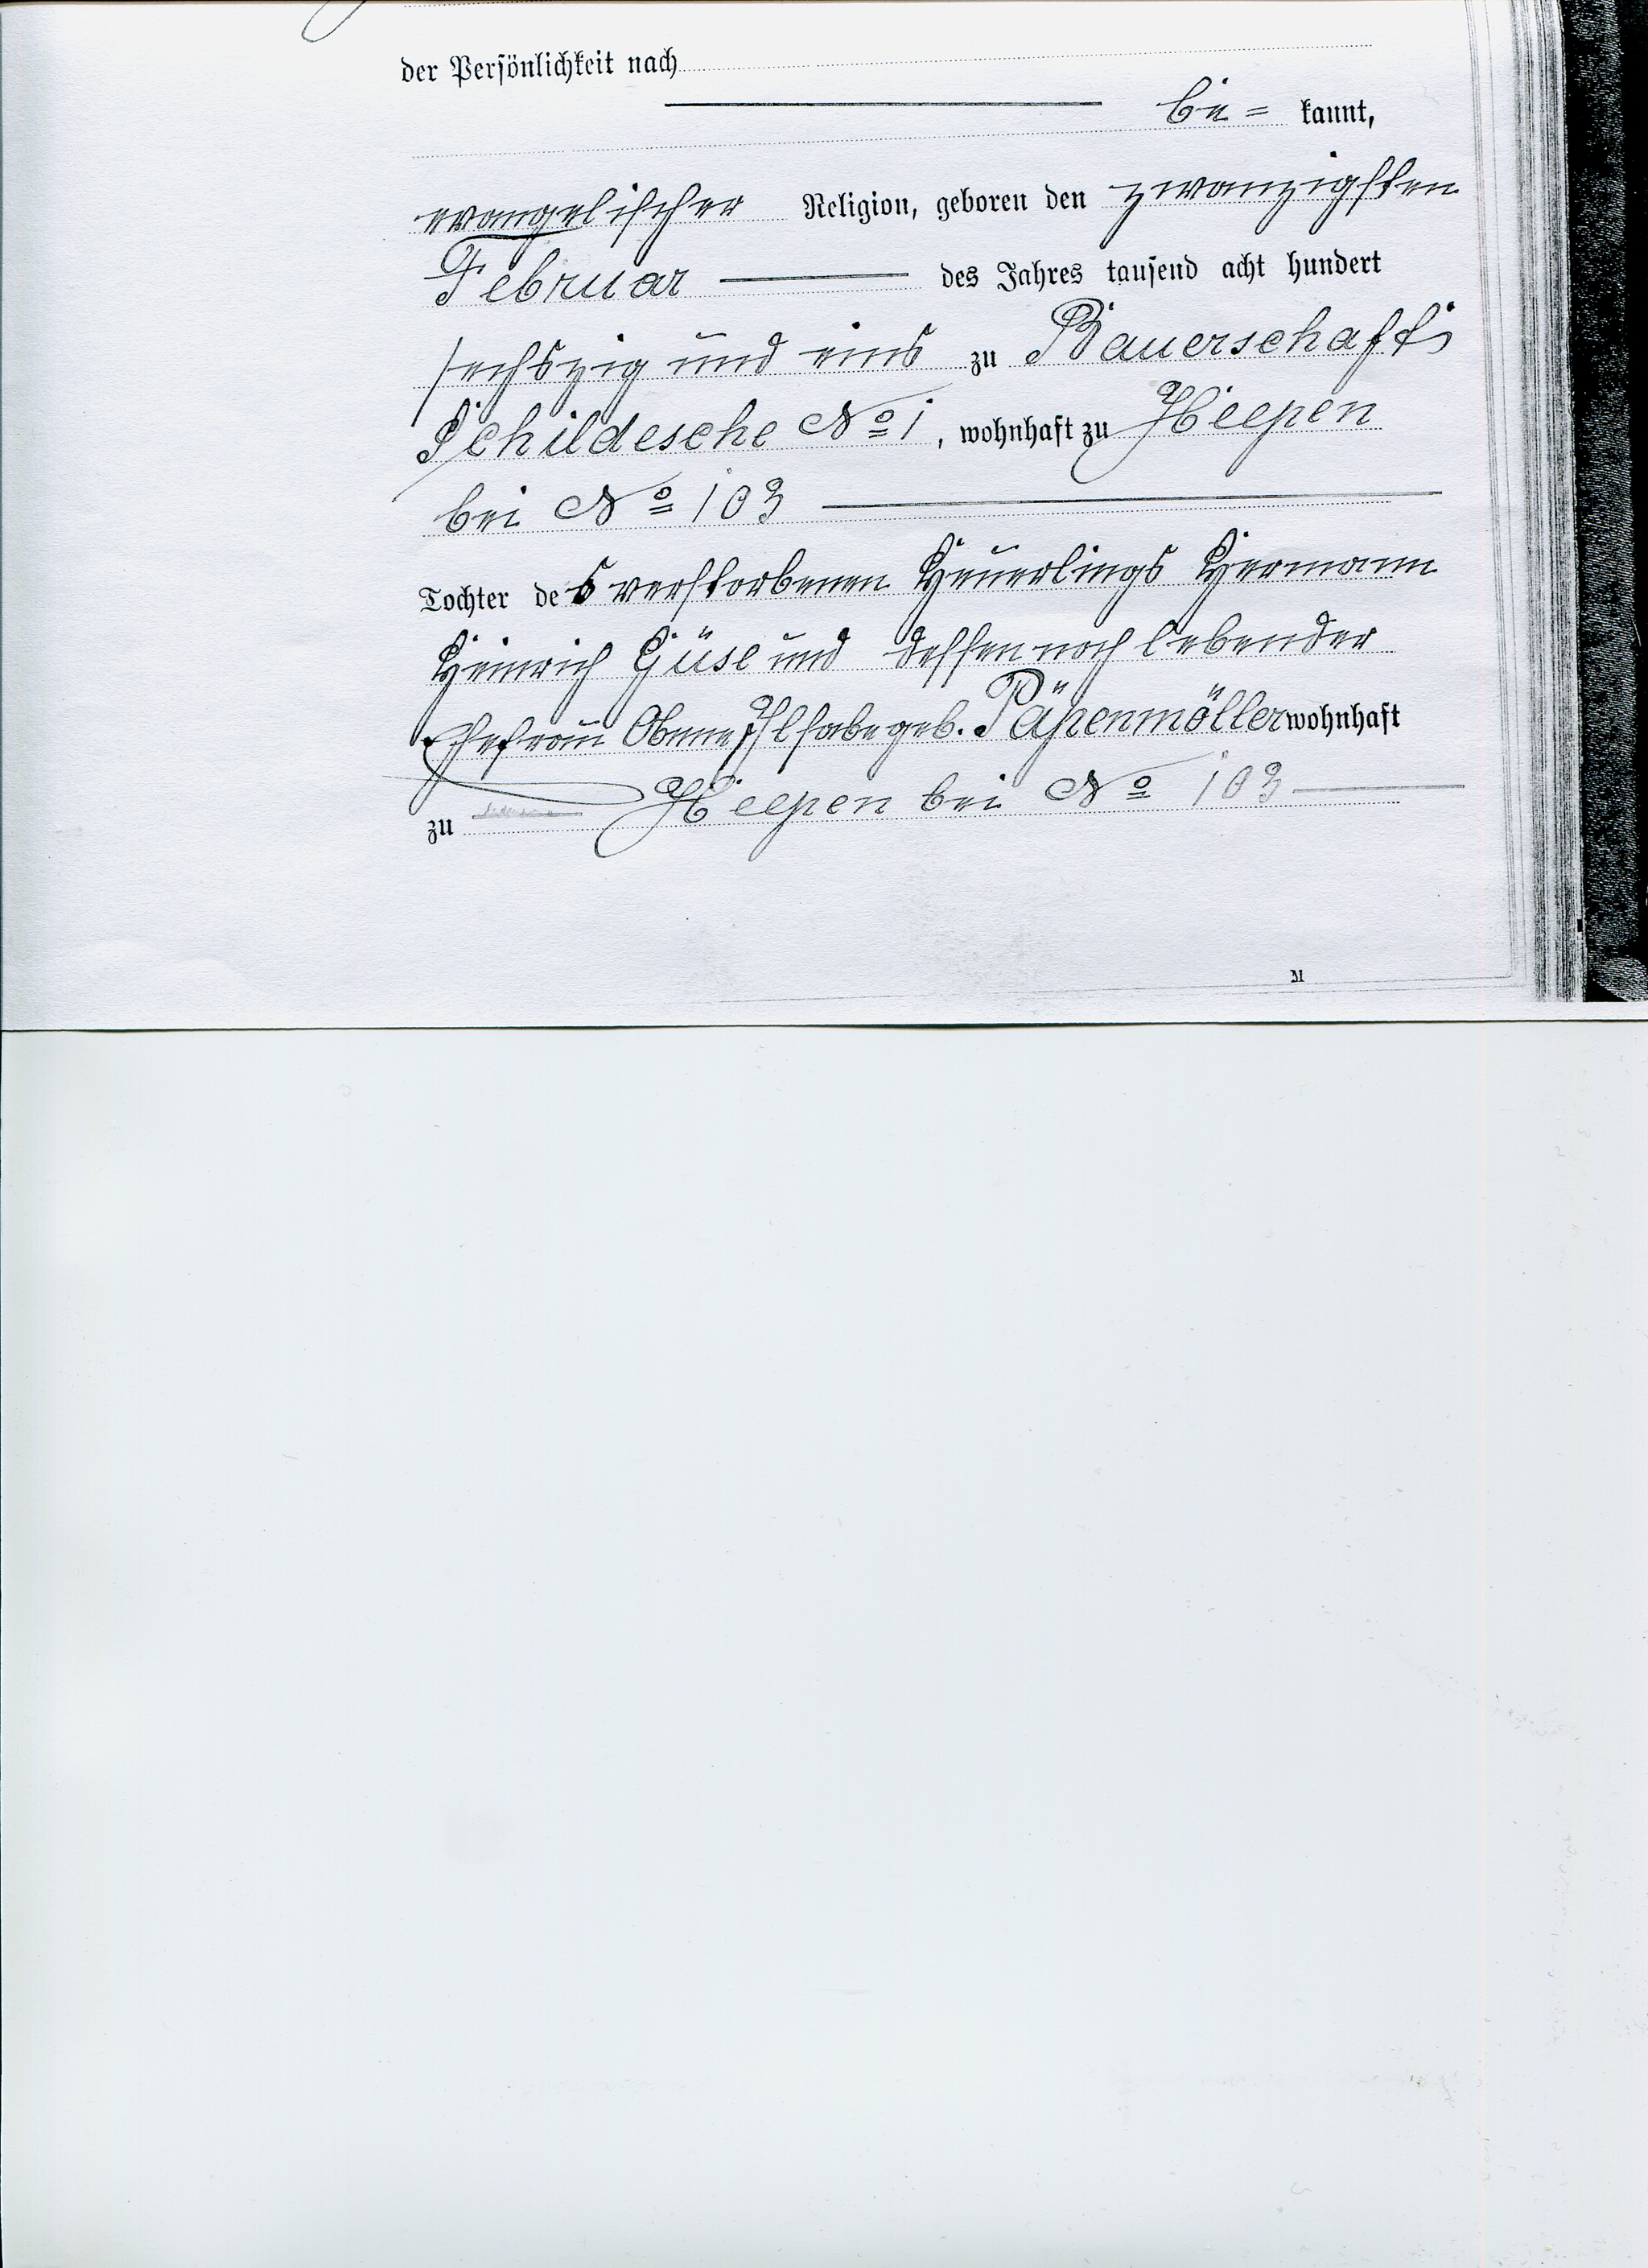 der Persönlichkeit nach
be= kannt,
evangelischer Religion, geboren den zwanzigsten
Februar des Jahres tausend acht hundert
sechszig und eins zu Bauerschaft
Schildesche No 1, wohnhaft zu Heepen
bei No 103
Tochter des verstorbenen Heuerlings Hermann
Heinrich Güse und dessen noch lebender
Ehefrau Anne Ilsabe geb. Päpenmöller wohnhaft
zu Heepen bei No 103
M